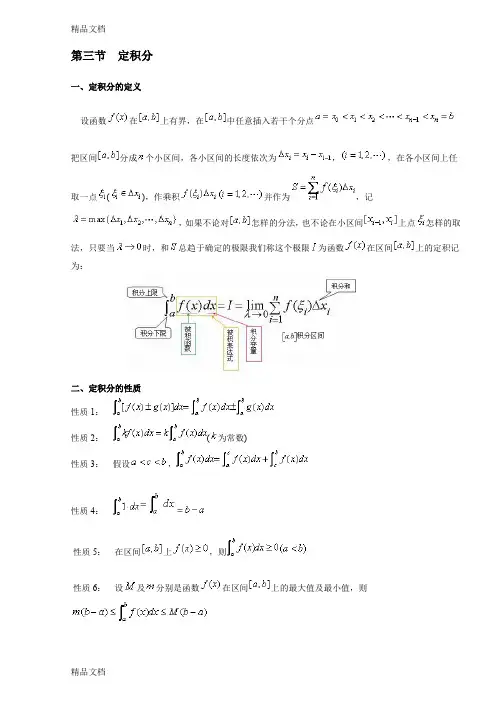 精品文档
第三节 定积分
一、定积分的定义
设函数 f(x) 在 [a,b] 上有界，在 [a,b] 中任意插入若干个分点 a = x₀ < x₁ < x₂ < ⋯ < xₙ₋₁ < xₙ = b
把区间 [a,b] 分成 n 个小区间，各小区间的长度依次为 Δxᵢ = xᵢ − xᵢ₋₁，(i=1,2,⋯)，在各小区间上任
取一点 ξᵢ (ξᵢ ∈ Δxᵢ)，作乘积 f(ξᵢ)Δxᵢ (i=1,2,⋯) 并作为 S = ∑_{i=1}^{n} f(ξᵢ)Δxᵢ，记
λ = max{Δx₁,Δx₂,⋯,Δxₙ}，如果不论对 [a,b] 怎样的分法，也不论在小区间 [xᵢ₋₁,xᵢ] 上点 ξᵢ 怎样的取
法，只要当 λ→0 时，和 S 总趋于确定的极限我们称这个极限 I 为函数 f(x) 在区间 [a,b] 上的定积记
为：
积分上限
积分和
∫_a^b f(x)dx = I = lim_{λ→0} ∑_{i=1}^{n} f(ξᵢ)Δxᵢ
积分下限
被积函数
被积表达式
积分变量
[a,b]积分区间
二、定积分的性质
性质1： ∫_a^b [f(x) ± g(x)]dx = ∫_a^b f(x)dx ± ∫_a^b g(x)dx
性质2： ∫_a^b kf(x)dx = k∫_a^b f(x)dx (k 为常数)
性质3： 假设 a < c < b，∫_a^b f(x)dx = ∫_a^c f(x)dx + ∫_c^b f(x)dx
性质4： ∫_a^b 1 dx = ∫_a^b dx = b − a
性质5： 在区间 [a,b] 上 f(x) ≥ 0，则 ∫_a^b f(x)dx ≥ 0 (a < b)
性质6： 设 M 及 m 分别是函数 f(x) 在区间 [a,b] 上的最大值及最小值，则
m(b − a) ≤ ∫_a^b f(x)dx ≤ M(b − a)
精品文档